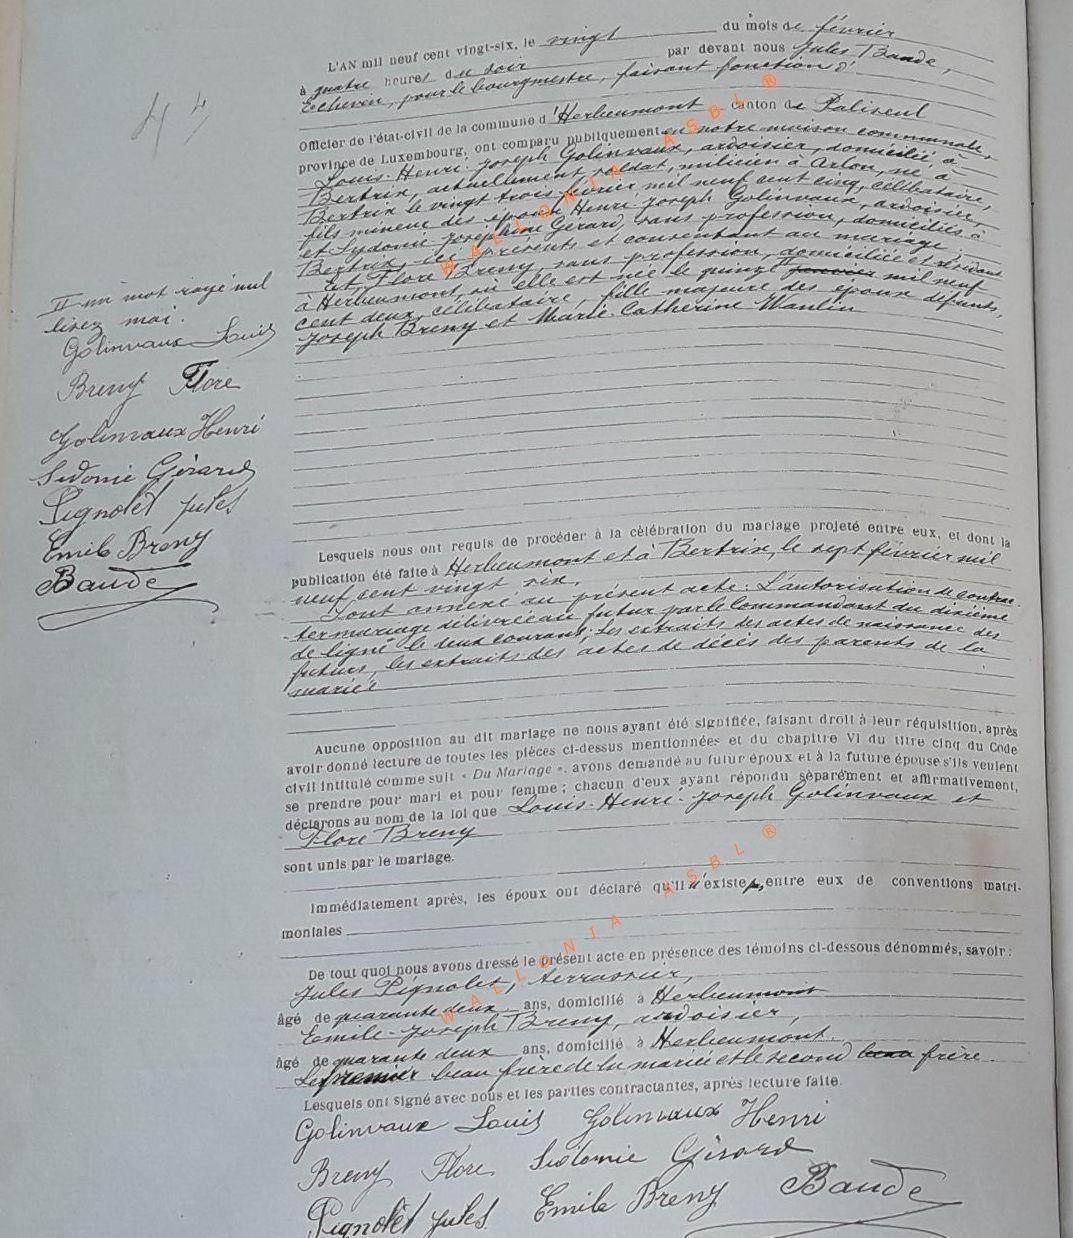 L'AN mil neuf cent vingt-six, le vingt du mois de février
à quatre heures du soir par devant nous Jules Baude,
Echevin, pour le bourgmestre, faisant fonction d'
Officier de l'état-civil de la commune d'Herbeumont canton de Paliseul
province de Luxembourg, ont comparu publiquement en notre maison communale,
Louis-Henri-Joseph Golinvaux, ardoisier, domicilié à
Bertrix, actuellement soldat, milicien à Arlon, né à
Bertrix le vingt trois février mil neuf cent cinq, célibataire,
fils mineur des époux Henri-Joseph Golinvaux, ardoisier,
et Sydonie Joséphine Gérard, sans profession, domiciliés à
Bertrix, ici présents et consentant au mariage
Et Flore Breny, sans profession, domiciliée et résidant
à Herbeumont, où elle est née le quinze II mil neuf
cent deux, célibataire, fille majeure des époux défunts,
Joseph Breny et Marie-Catherine Wanlin
44
II un mot rayé nul
lisez mai.
Golinvaux Louis
Breny Flore
Golinvaux Henri
Sidonie Gérard
Pignolet Jules
Emile Breny
Baude
Lesquels nous ont requis de procéder à la célébration du mariage projeté entre eux, et dont la
publication été faite à Herbeumont et à Bertrix, le sept février mil
neuf cent vingt six.
Sont annexé au présent acte: L'autorisation de contrac-
ter mariage délivrée au futur par le Commandant du dixième
de ligne le deux courant; les extraits des actes de naissance des
futurs, les extraits des actes de décès des parents de la
mariée
Aucune opposition au dit mariage ne nous ayant été signifiée, faisant droit à leur réquisition, après
avoir donné lecture de toutes les pièces ci-dessus mentionnées et du chapitre VI du titre cinq du Code
civil intitulé comme suit « Du Mariage ». avons demandé au futur époux et à la future épouse s'ils veulent
se prendre pour mari et pour femme ; chacun d'eux ayant répondu séparément et affirmativement,
déclarons au nom de la loi que Louis-Henri-Joseph Golinvaux et
Flore Breny
sont unis par le mariage.
Immédiatement après, les époux ont déclaré qu'il n'existe pas entre eux de conventions matri-
moniales
De tout quoi nous avons dressé le présent acte en présence des témoins ci-dessous dénommés, savoir :
Jules Pignolet, terrassier,
âgé de quarante deux ans, domicilié à Herbeumont
Emile-Joseph Breny, ardoisier,
âgé de quarante deux ans, domicilié à Herbeumont.
Le premier beau frère de la mariée et le second beau frère.
Lesquels ont signé avec nous et les parties contractantes, après lecture faite.
Golinvaux Louis Golinvaux Henri
Breny Flore Sidonie Gérard
Pignolet Jules Emile Breny Baude
WALLONIA ASBL ®
WALLONIA ASBL ®